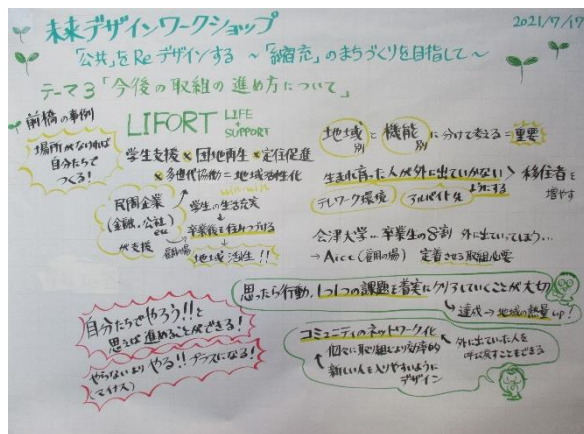 未来デザインワークショップ
2021/7/17
「公共」をReデザインする 〜「縮充」のまちづくりを目指して〜
テーマ3「今後の取組の進め方について」
前橋の事例
場所がなければ
自分たちで
つくる!
LIFORT LIFE
SUPPORT
学生支援×団地再生×定住促進
×多世代協働=地域活性化
win-win
民間企業
(金融、公社)
etc
が支援
学生の生活充実
卒業後も住みつづける
地域活性!!
地域別と機能別に分けて考える=重要
生まれ育った人が外に出ていかない > 移住者を
ようにする
増やす
テレワーク環境
アルバイト先
会津大学…卒業生の8割 外に出ていってしまう…
→Aicc(雇用の場) 定着させる取組必要
思ったら行動、1つ1つの課題を着実にクリアしていくことが大切
達成→地域の熱量up!
自分たちでやろう!!と
思えば進めることができる!
やらないよりやる!!プラスになる!
(マイナス)
コミュニティのネットワーク化
個々に取組より効率的
新しい人も入りやすいように
デザイン
外に出ていた人を
呼び戻すこともできる